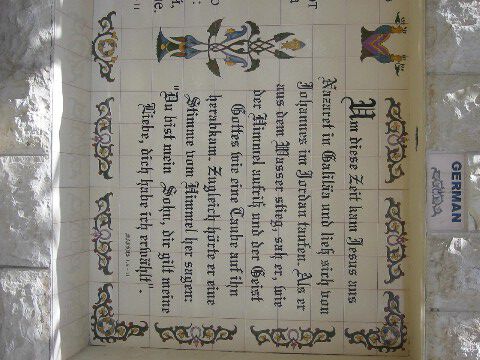 GERMAN
Um diese Zeit kam Jesus aus
Nazaret in Galiläa und ließ sich von
Johannes im Jordan taufen. Als er
aus dem Wasser stieg, sah er, wie
der Himmel aufriß und der Geist
Gottes wie eine Taube auf ihn
herabkam. Zugleich hörte er eine
Stimme vom Himmel her sagen:
"Du bist mein Sohn, dir gilt meine
Liebe, dich habe ich erwählt".